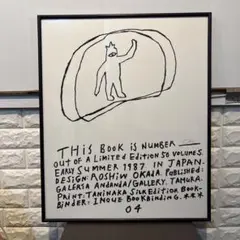 THIS BOOK IS NUMBER
OUT OF A LIMITED EDITION 50 VOLUMES.
EARLY SUMMER 1987 IN JAPAN.
DESIGN: ROSHIW OKADA. PUBLISHED:
GALERIA ANDANDA/GALLERY. TAMURA.
PRINT: TANINAKA SILK EDITION BOOK-
BINDER: INOUE BOOKBINDING. ***
04